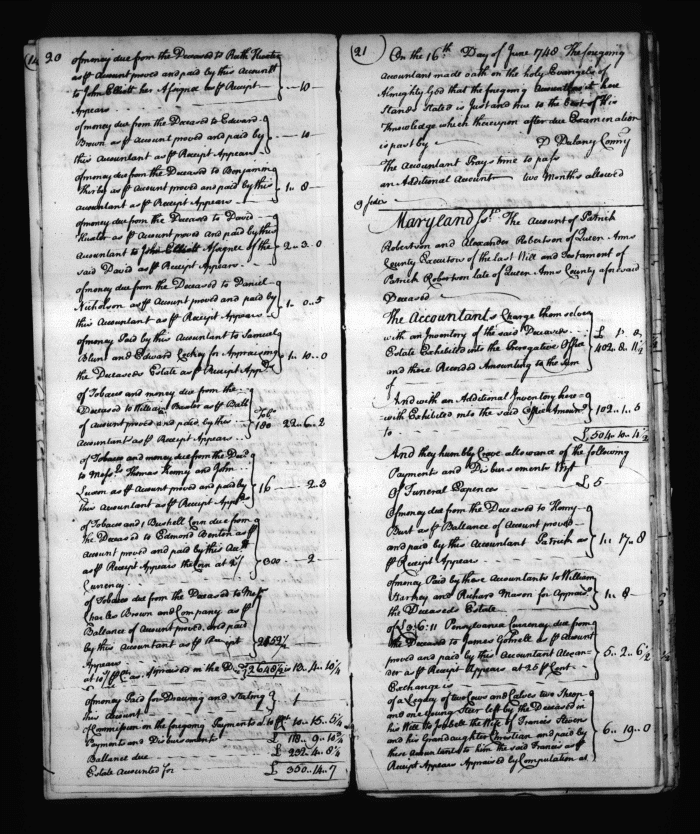 20
of money due from the Deceased to Ruth
as ⅌ Account proved and paid by this Accountt
to John Elliott her Assignee as ⅌ Receipt
Appears
10
of money due from the Deceased to Edward
Brown as ⅌ Account proved and paid by
this Accountant as ⅌ Receipt Appears
10
of money due from the Deceased to Benjamin
as ⅌ Account proved and paid by this
accountant as ⅌ Receipt Appears
1.. 8
of money due from the Deceased to David
as ⅌ Account proved and paid by this
Accountant to John Elliott Assignee of the
said David as ⅌ Receipt Appears
2.. 3.. 0
of money due from the Deceased to Daniel
Nicholson as ⅌ Account proved and paid by
this Accountant as ⅌ Receipt Appears
1.. 0.. 5
of money Paid by this Accountant to Samuel
Blunt and Edward for Appraising
the Deceaseds Estate as ⅌ Receipt Appds
1.. 10.. 0
of Tobacco and money due from the
Deceased to William as ⅌ Ball
of account proved and paid by this
Accountant as ⅌ Receipt Appears
Tobo
180 22.. 6.. 2
of Tobacco and money due from the Decd
to Messrs Thomas and John
as ⅌ Account proved and paid by
this Accountant as ⅌ Receipt Appds
16 2.. 3
of Tobacco and 1 Bushell Corn due from
the Deceased to Edmond Benton as ⅌
Account proved and paid by this Acctt
as ⅌ Receipt Appears the Corn at 2/
Currency
300 2
of Tobacco due from the Deceased to Messrs
Charles Brown and Company as ⅌
Ballance of Account proved, and paid
by this Accountant as ⅌ Receipt
Appears
2152½
at 10/ ⅌ Ct. as Appraised in the D 2648½ is 13.. 4.. 10¼
of money Paid for Drawing and Stating
this Account
1
of Commission on the foregoing Payments 10.. 15.. 5¼
Payments and Disbursement £ 118.. 9.. 10¾
Ballance due £ 232.. 4.. 8¼
Estate Accounted for £ 350.. 14.. 7
21
On the 16th Day of June 1748 The foregoing
Accountant made oath on the holy Evangels of
Almighty God that the foregoing Account as it here
Stands Stated is Just and true to the best of His
Knowledge which thereupon after due Examination
is past by D Dulany Commy
The Accountant Prays time to pass
an Additional Account two Months allowed
9 sides
Maryland sst. The Account of Patrick
Robertson and Alexander Robertson of Queen Anns
County Executors of the Last Will and Testament of
Patrick Robertson late of Queen Anns County aforesaid
Deceased
The Accountants Charge themselves
with an Inventory of the said Deceaseds
Estate Exhibited into the Prerogative Office
and there Recorded Amounting to the Sum
of
£ s. d,
402.. 8.. 11½
And with an Additional Inventory here
with Exhibited into the said Office Amountg
to
102.. 1.. 5
£ 504.. 10.. 4½
And they humbly Crave allowance of the following
Payments and Disbursements Vizt
Of Funeral Expences £ 5
Of money due from the Deceased to Henry
Burt as ⅌ Ballance of Account proved
and paid by this Accountant Patrick as
⅌ Receipt Appears
1.. 17.. 8
of money Paid by these Accountants to William
and Richard Mason for Appraisg
the Deceaseds Estate
1.. 8
of £ 3:6:11 Pensylvania Currency due from
the Deceased to James as ⅌ Account
proved and paid by this Accountant Alexan
der as ⅌ Receipt Appears at 25 ⅌ Cent
Exchange is
5.. 2.. 6½
of a Legacy of two Cows and Calves two Sheep
and one Young Steer left by the Deceased in
his Will to Isabella the Wife of Francis Stevens
and his Grandaughter Christian and paid by
these Accountants to him the said Francis as ⅌
Receipt Appears Appraised by Computation at
6.. 19.. 0